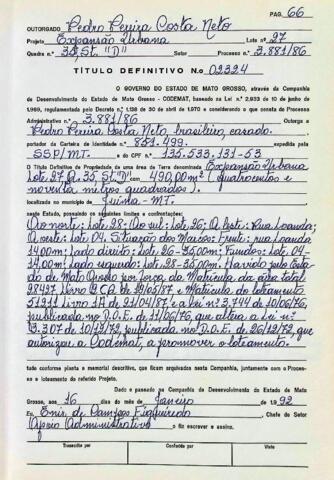 PAG. 66
OUTORGADO Pedro Pereira Costa Neto
Projeto Expansão Urbana Lote nº 27
Quadra nº 35, St. "D" Setor Processo nº 3.881/86
TÍTULO DEFINITIVO Nº 02324
O GOVERNO DO ESTADO DE MATO GROSSO, através da Companhia
de Desenvolvimento do Estado de Mato Grosso - CODEMAT, baseado na Lei nº 2.933 de 10 de junho de
1969, regulamentada pelo Decreto nº 1.138 de 30 de abril de 1970 e considerando o que consta do Processo
Administrativo nº 3.881/86 Outorga a
Pedro Pereira Costa Neto, brasileiro, casado.
portador da Carteira de Identidade nº 851.499. expedida pela
SSP/MT. e do CPF nº 135.533.131-53
O Título Definitivo de Propriedade de uma área de Terra denominada Expansão Urbana
Lote 27 Q. 35, St. "D" com 490,00 m² (quatrocentos e
noventa metros quadrados).
localizada no município de Juína - MT.
neste Estado, possuindo os seguintes limites e confrontações:
Ao norte: Lote 28 - Ao sul: Lote 26; A leste: Rua Loanda
A oeste: Lote 04. Situação dos Marcos: Frente: rua Loanda
14.00m; Lado direito: Lote 26 - 35.00m; Fundos: Lote 04 -
14.00m Lado esquerdo: Lote 28 - 35.00m. Havido pelo Esta-
do de Mato Grosso por força da Matrícula da área total
28427 Livro 2CA de 19/05/87, e Matrícula do loteamento
51211 Livro 1A de 21/04/87, e a lei nº 3.744 de 10/06/76,
publicada no D.O.E. de 11/06/76, que altera a Lei nº
3.307 de 10/12/72, publicada no D.O.E. de 26/12/72, que
autorizou a Codemat, a promover o loteamento.
tudo conforme planta e memorial descritivo, que ficam arquivados nesta Companhia, juntamente com o Proces-
so e loteamento do referido Projeto.
Dado e passado na Companhia de Desenvolvimento do Estado de Mato
Grosso, aos 16 dias do mês de Janeiro de 1.992
Eu, Enir de Campos Figueiredo Chefe do Setor
Apoio Administrativo o fiz escrever e assino.
Transcrito por Conferido por Visto